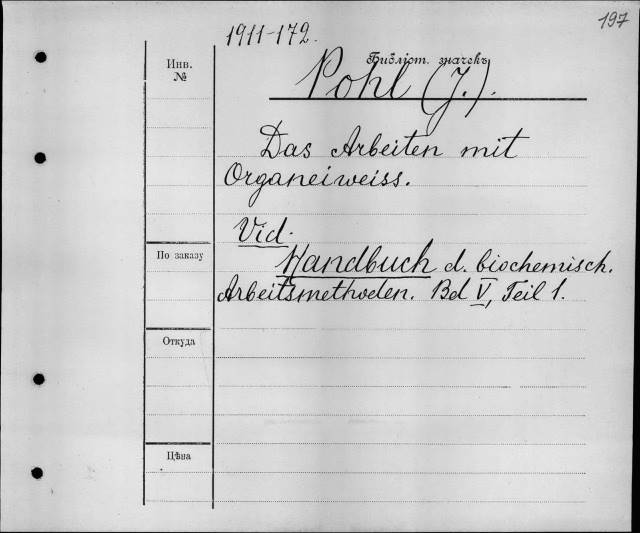 197
1911-172.
Инв.
№
Библіот. значекъ
Pohl (J.).
Das Arbeiten mit
Organeiweiss.
Vid.
По заказу
Handbuch d. biochemisch.
Arbeitsmethoden. Bd V, Teil 1.
Откуда
Цѣна